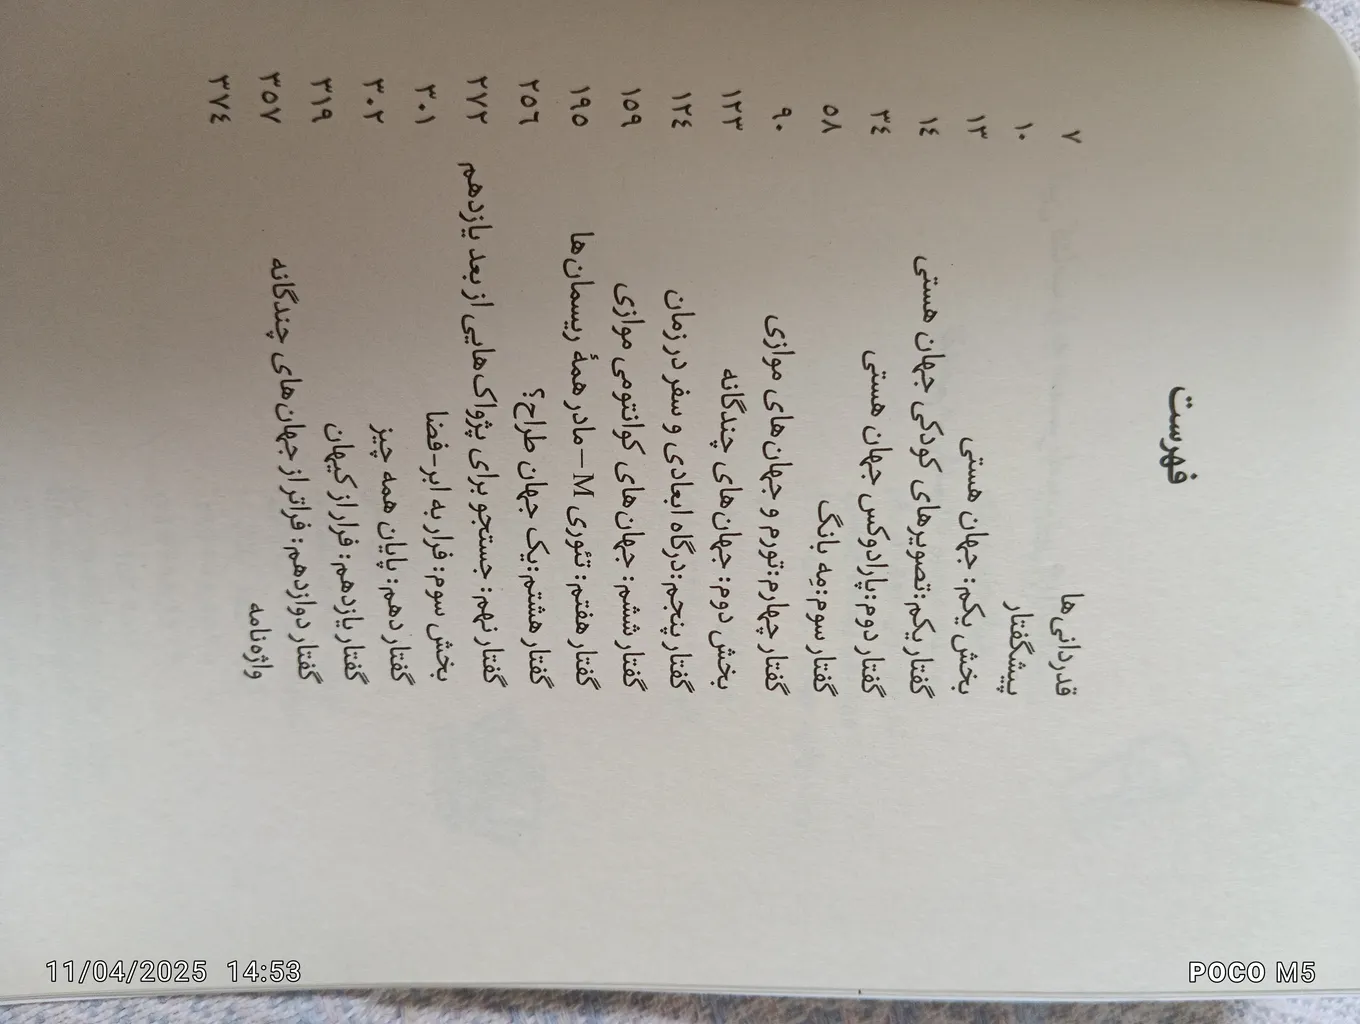 فهرست
قدردانی‌ها ۷
پیشگفتار ۱۰
بخش یکم: جهان هستی ۱۳
گفتار یکم: تصویرهای کودکی جهان هستی ۱٤
گفتار دوم: پارادوکس جهان هستی ۳٤
گفتار سوم: مِه بانگ ۵۸
گفتار چهارم: تورم و جهان‌های موازی ۹۰
بخش دوم: جهان‌های چندگانه ۱۲۳
گفتار پنجم: درگاه ابعادی و سفر در زمان ۱۲٤
گفتار ششم: جهان‌های کوانتومی موازی ۱۵۹
گفتار هفتم: تئوری M – مادر همهٔ ریسمان‌ها ۱۹۵
گفتار هشتم: یک جهان طراح؟ ۲۵٦
گفتار نهم: جستجو برای پژواک‌هایی از بعد یازدهم ۲۷۲
بخش سوم: فرار به ابر-فضا ۳۰۱
گفتار دهم: پایان همه چیز ۳۰۲
گفتار یازدهم: فرار از کیهان ۳۱۹
گفتار دوازدهم: فراتر از جهان‌های چندگانه ۳۵۷
واژه‌نامه ۳۷٤
11/04/2025 14:53
POCO M5